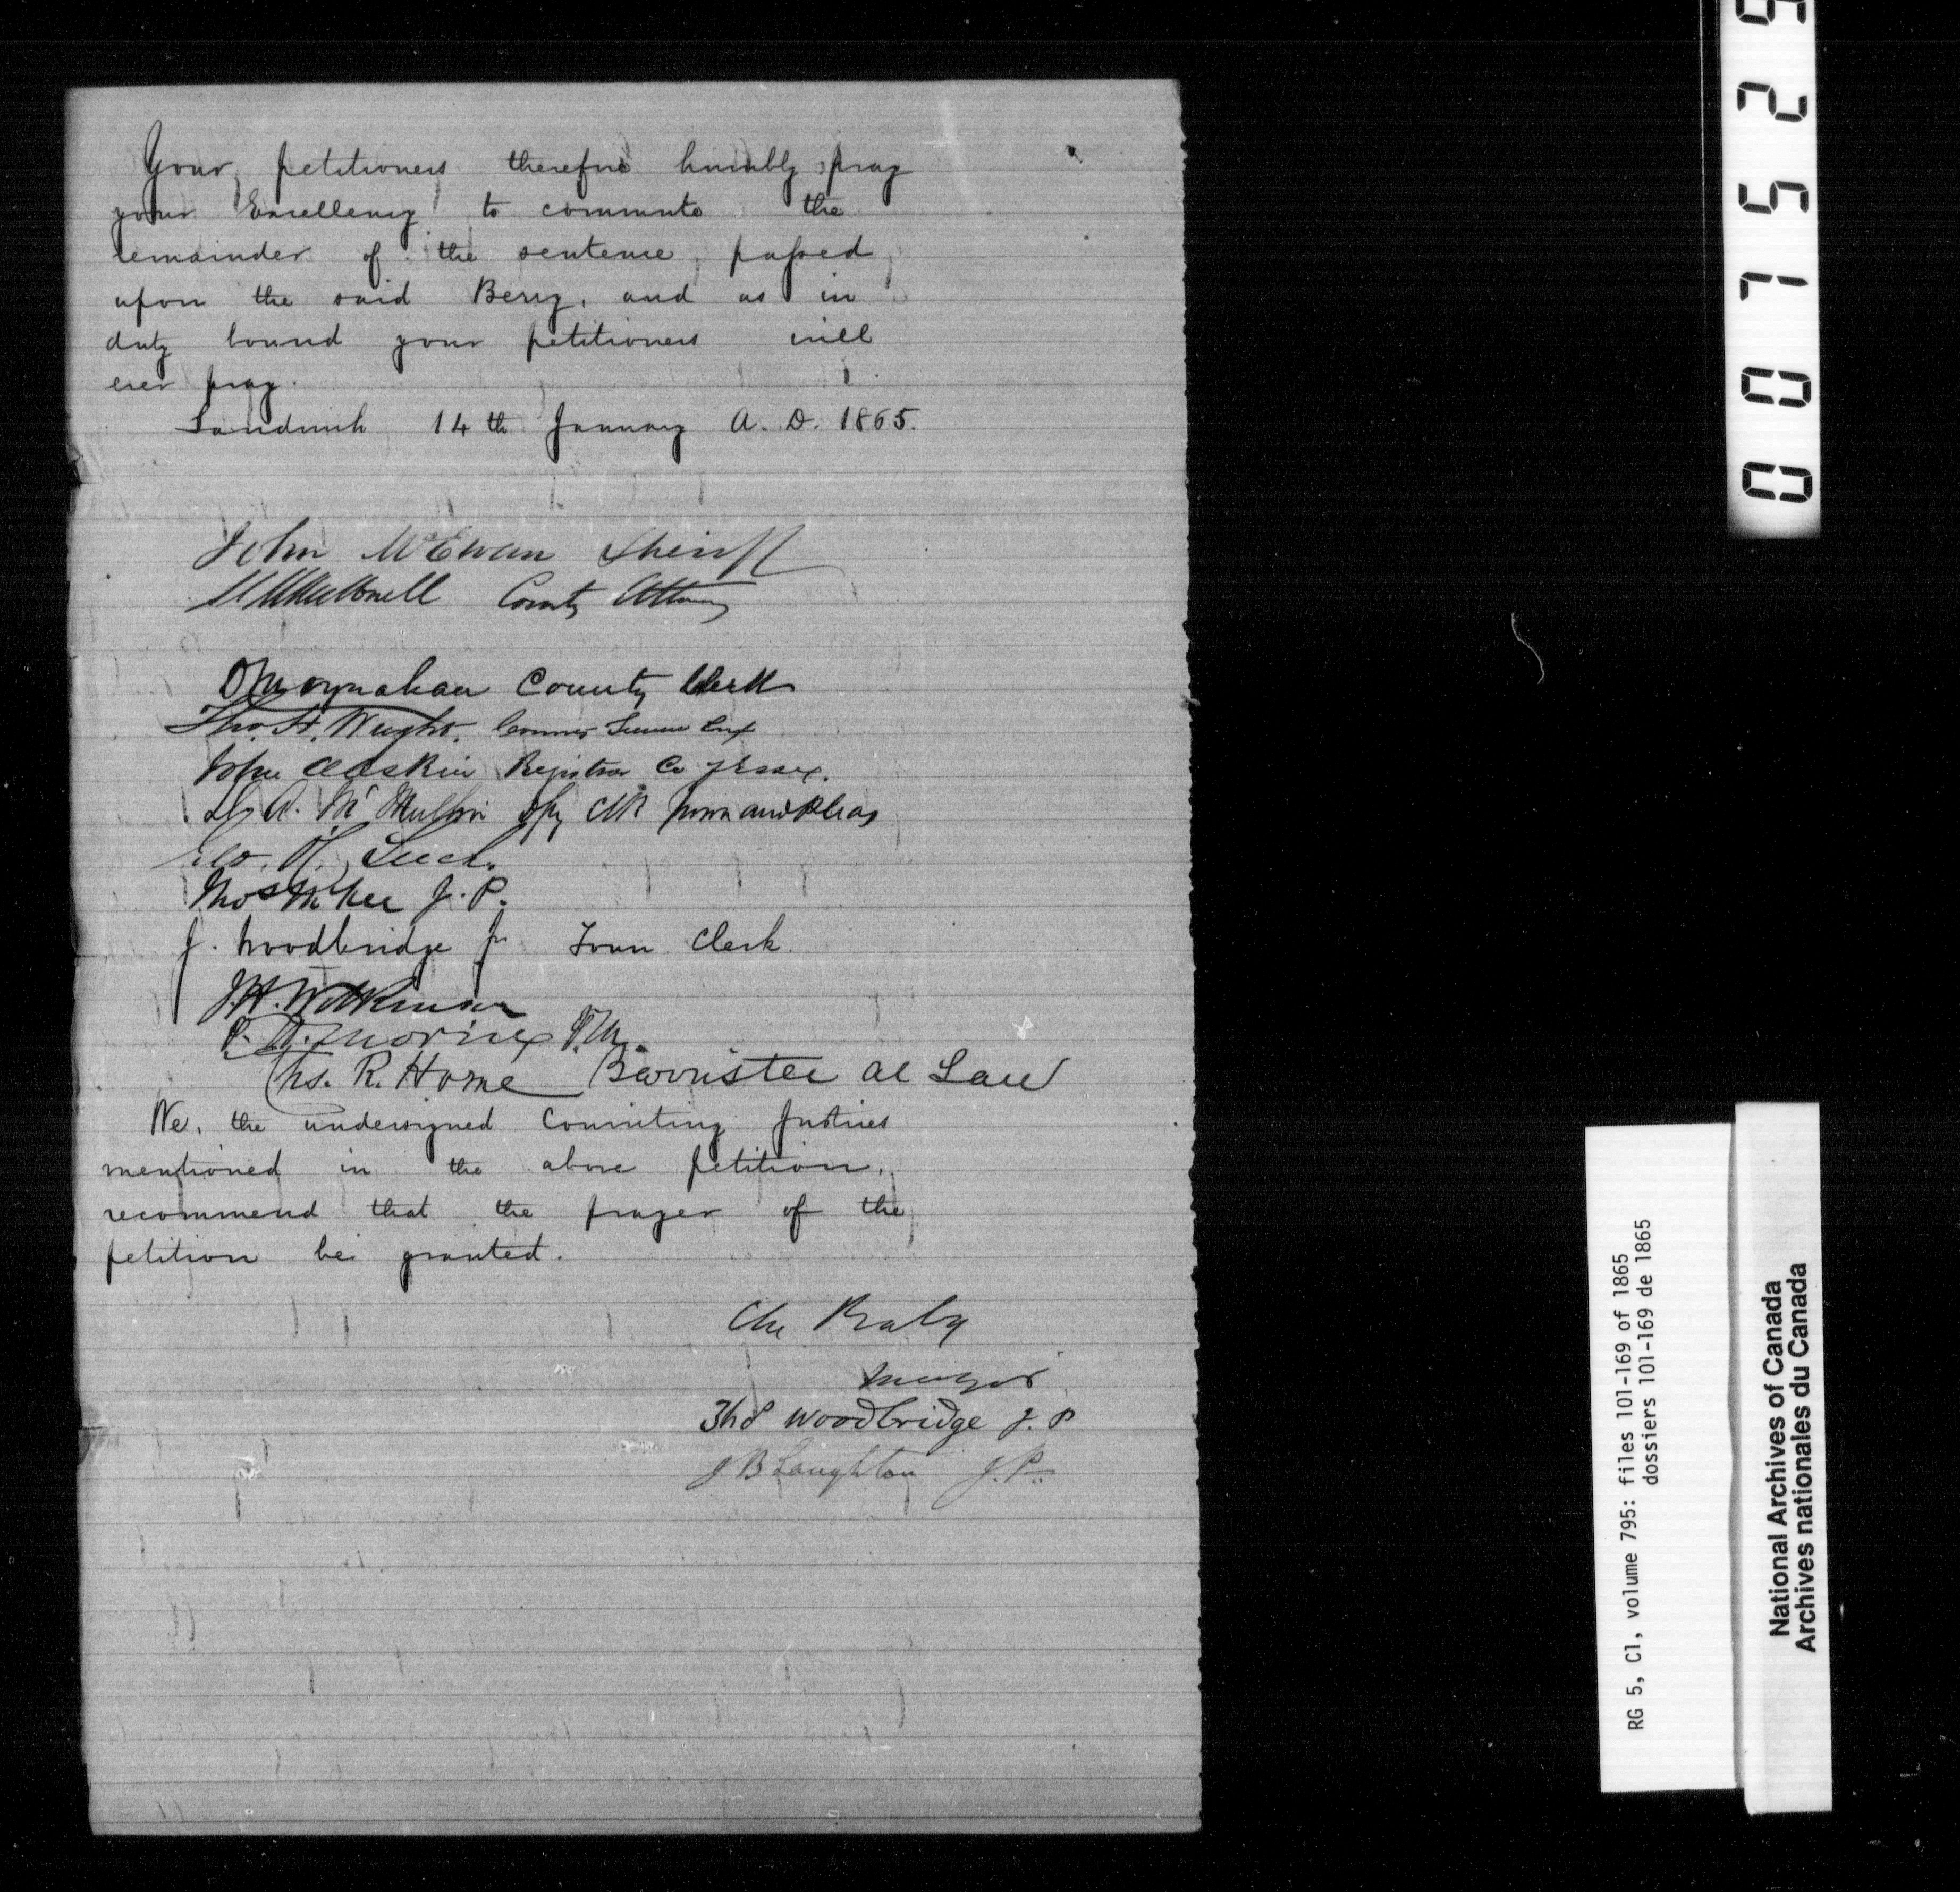 Your petitioners therefore humbly pray
your Excellency to commute the
remainder of the sentence passed
upon the said Berry, and as in
duty bound your petitioners will
ever pray.
Sandwich 14th January A. D. 1865.
John McEwan Sheriff
County Attorney
County Clerk
Thos. H. Wright.
John Askin Registrar Co Essex.
D. A. McMullin Dpy Clk Crown and Pleas
Geo. H. Leech.
Thos McKee J. P.
J. Woodbridge Jr Town Clerk.
J.H. Wilkinson
P. H. Morin P.M.
Chs. R. Horne Barrister at Law
We, the undersigned Commiting Justices
mentioned in the above petition,
recommend that the prayer of the
petition be granted.
Chs Baby
Mayor
Thos Woodbridge J. P
J B Laughton J. P.
0 0 7 5 2 9
RG 5, C1, volume 795: files 101-169 of 1865
dossiers 101-169 de 1865
National Archives of Canada
Archives nationales du Canada